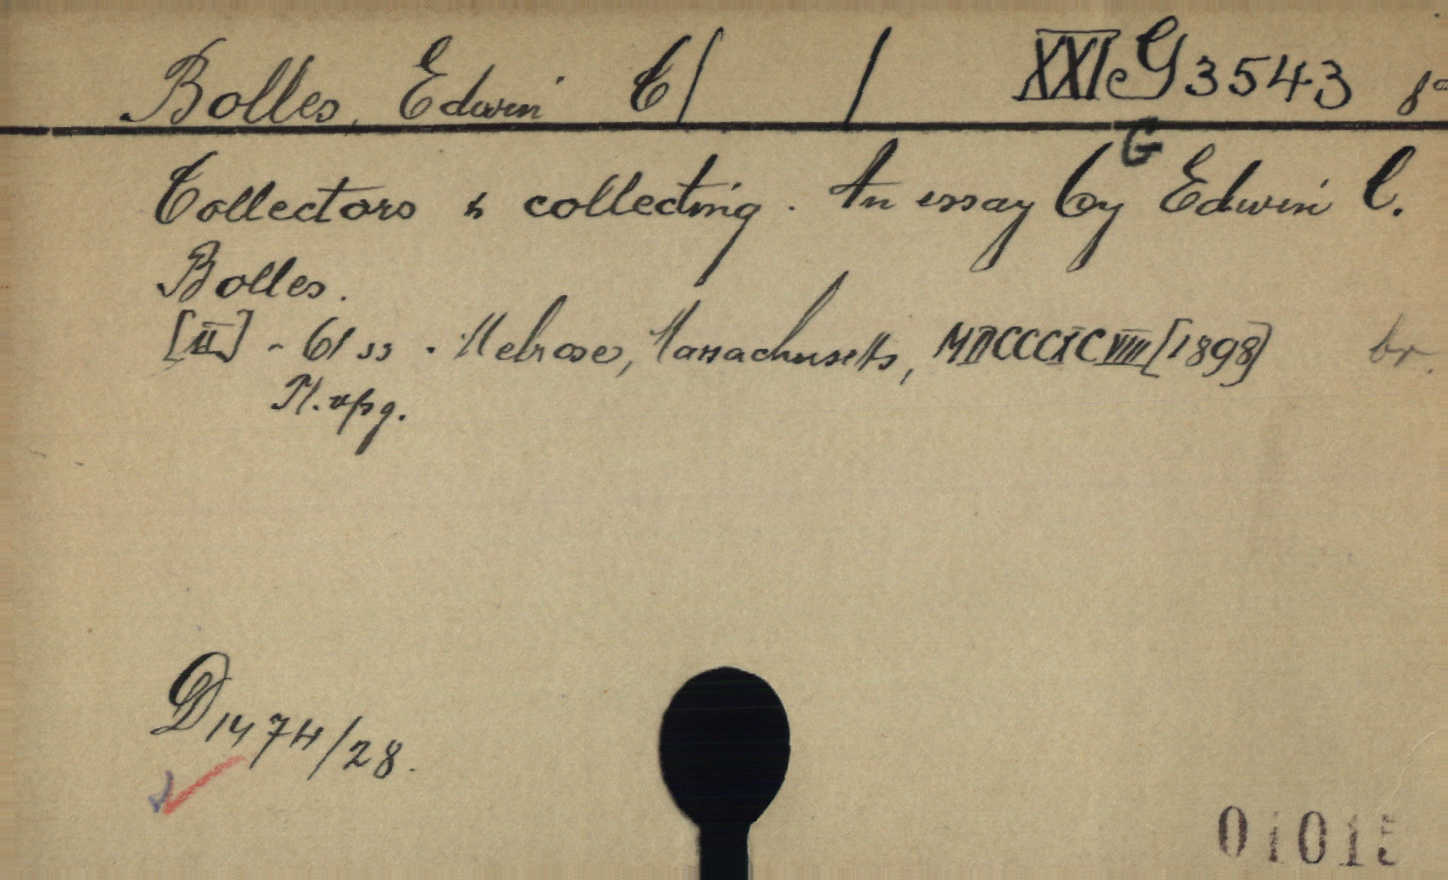 Bolles, Edwin C/ / XXI e G 3543 8°
G
Collectors & collecting. An essay by Edwin C.
Bolles.
[II] - 61 ss. Melrose, Massachusetts, MDCCCXCVIII [1898] br.
D 1474/28.
01015